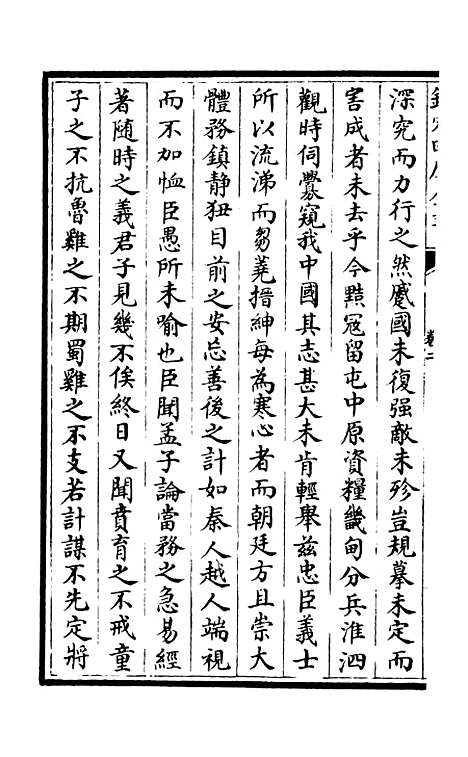 欽定四庫全書
卷二
深究而力行之然蹙國未復强敵未殄豈規摹未定而
害成者未去乎今黠冦留屯中原資糧畿甸分兵淮泗
觀時伺釁窺我中國其志甚大未肯輕舉兹忠臣義士
所以流涕而芻蕘搢紳每為寒心者而朝廷方且崇大
體務鎮静狃目前之安忘善後之計如秦人越人端視
而不加恤臣愚所未喻也臣聞孟子論當務之急易經
著随時之義君子見幾不俟終日又聞賁育之不戒童
子之不抗魯雞之不期蜀雞之不支若計謀不先定將